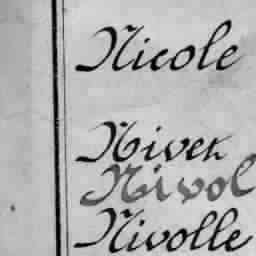 Nicole
Niver
Nivol
Nivolle